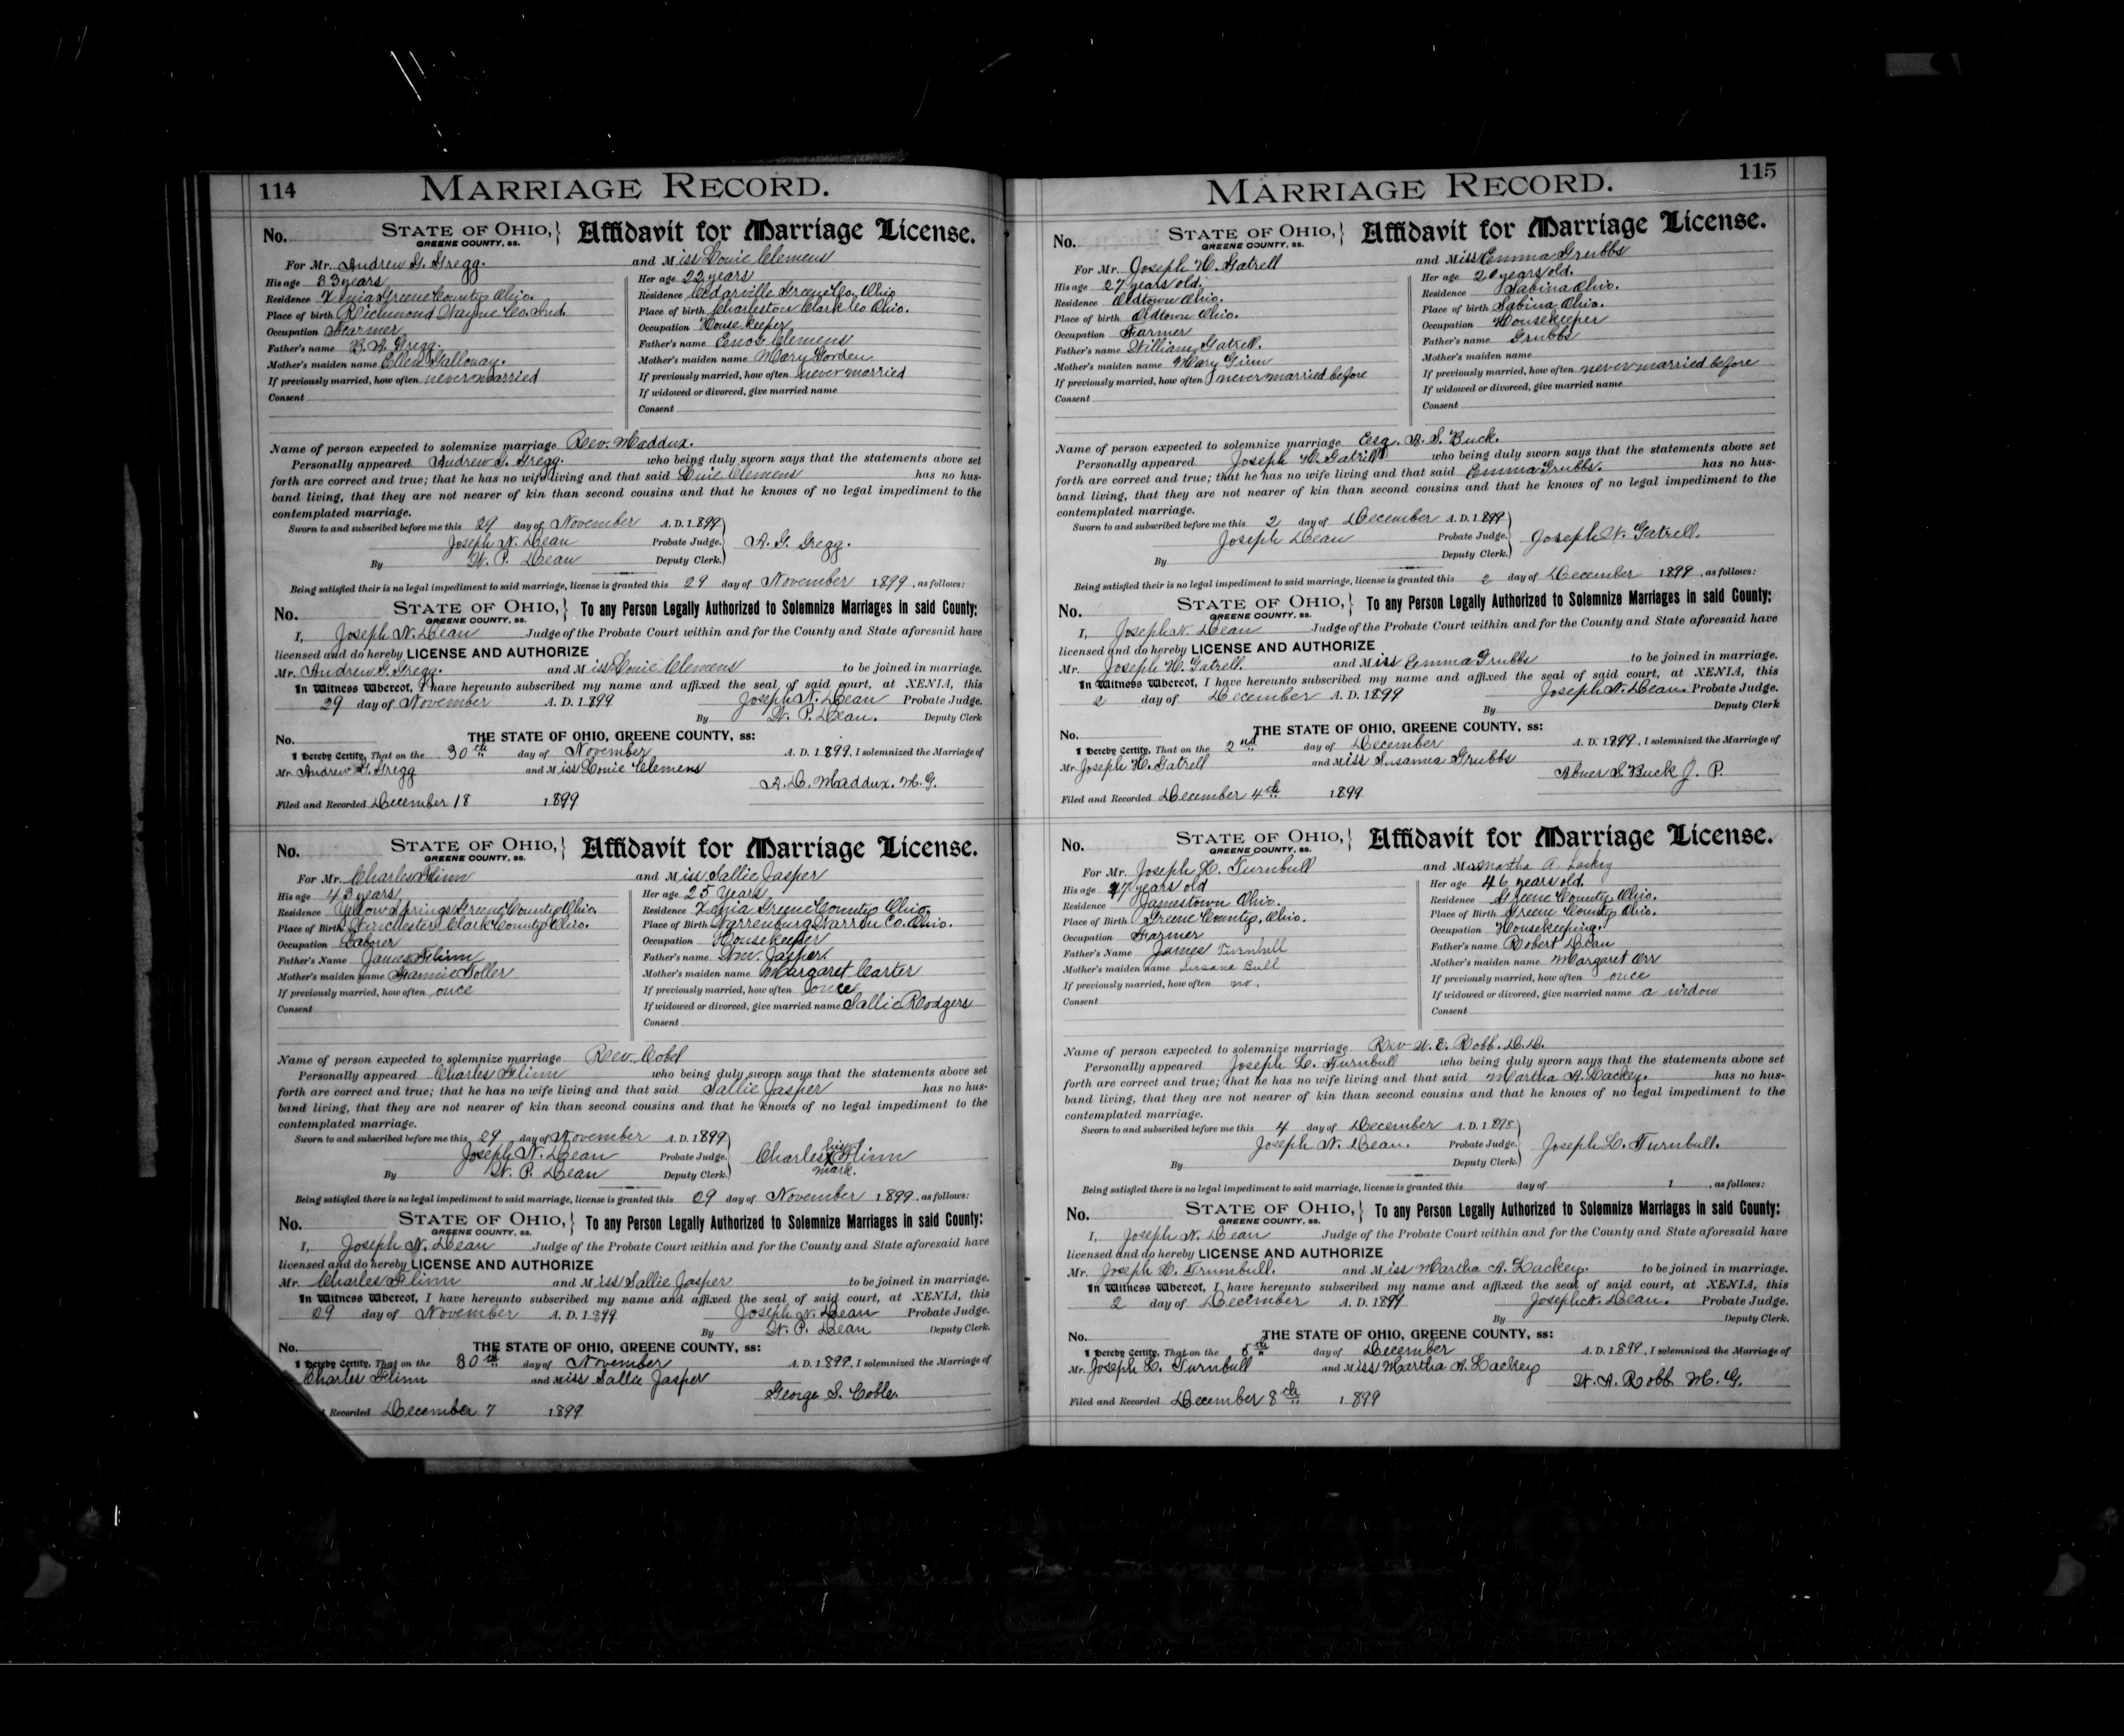 114
MARRIAGE RECORD.
No. STATE OF OHIO, GREENE COUNTY, ss. } Affidavit for Marriage License.
For Mr. Andrew G. Gregg.
His age 33 years
Residence Xenia Greene County Ohio.
Place of birth Richmond Wayne Co. Ind.
Occupation Farmer
Father's name Gregg.
Mother's maiden name Ellen Galloway.
If previously married, how often never married
Consent
and Miss Louie Clemens
Her age 22 years
Residence Cedarville Greene Co, Ohio
Place of birth Charleston Clark Co Ohio.
Occupation Housekeeper
Father's name Enos Clemens
Mother's maiden name Mary Gorden
If previously married, how often never married
If widowed or divorced, give married name
Consent
Name of person expected to solemnize marriage Rev. Maddux.
Personally appeared Andrew G. Gregg. who being duly sworn says that the statements above set
forth are correct and true; that he has no wife living and that said Clemens has no hus-
band living, that they are not nearer of kin than second cousins and that he knows of no legal impediment to the
contemplated marriage.
Sworn to and subscribed before me this 29 day of November A. D. 1899
Joseph N. Dean Probate Judge. A. G. Gregg.
By W. P. Dean Deputy Clerk.
Being satisfied their is no legal impediment to said marriage, license is granted this 29 day of November 1899, as follows:
No. STATE OF OHIO, GREENE COUNTY, ss. } To any Person Legally Authorized to Solemnize Marriages in said County:
I, Joseph N. Dean Judge of the Probate Court within and for the County and State aforesaid have
licensed and do hereby LICENSE AND AUTHORIZE
Mr. Andrew G. Gregg. and Miss Louie Clemens to be joined in marriage.
In Witness Whereof, I have hereunto subscribed my name and affixed the seal of said court, at XENIA, this
29 day of November A. D. 1899. Joseph N. Dean Probate Judge.
By W. P. Dean. Deputy Clerk
No. THE STATE OF OHIO, GREENE COUNTY, ss:
I Hereby Certify, That on the 30th day of November A. D. 1899, I solemnized the Marriage of
Mr. Andrew G. Gregg and Miss Louie Clemens
Maddux. M. G.
Filed and Recorded December 18 1899
No. STATE OF OHIO, GREENE COUNTY, ss. } Affidavit for Marriage License.
For Mr. Charles Flinn
His age 43 years
Residence Yellow Springs Greene County Ohio.
Place of Birth Winchester Clark County Ohio.
Occupation Laborer
Father's Name James Flinn
Mother's maiden name Toller
If previously married, how often once
Consent
and Miss Sallie Jasper
Her age 25 Years
Residence Xenia Greene County Ohio
Place of Birth Warren Co. Ohio.
Occupation Housekeeper
Father's name Wm. Jasper
Mother's maiden name Margaret Carter
If previously married, how often once
If widowed or divorced, give married name Sallie Rodgers
Consent
Name of person expected to solemnize marriage Rev. Cobel
Personally appeared Charles Flinn who being duly sworn says that the statements above set
forth are correct and true; that he has no wife living and that said Sallie Jasper has no hus-
band living, that they are not nearer of kin than second cousins and that he knows of no legal impediment to the
contemplated marriage.
Sworn to and subscribed before me this 29 day of November A. D. 1899
Joseph N. Dean Probate Judge. Charles his X mark. Flinn
By W. P. Dean Deputy Clerk.
Being satisfied there is no legal impediment to said marriage, license is granted this 29 day of November 1899, as follows:
No. STATE OF OHIO, GREENE COUNTY, ss. } To any Person Legally Authorized to Solemnize Marriages in said County:
I, Joseph N. Dean Judge of the Probate Court within and for the County and State aforesaid have
licensed and do hereby LICENSE AND AUTHORIZE
Mr. Charles Flinn and Miss Sallie Jasper to be joined in marriage.
In Witness Whereof, I have hereunto subscribed my name and affixed the seal of said court, at XENIA, this
29 day of November A. D. 1899 Joseph N. Dean Probate Judge.
By W. P. Dean Deputy Clerk.
No. THE STATE OF OHIO, GREENE COUNTY, ss:
I Hereby Certify, That on the 30th day of November A. D. 1899, I solemnized the Marriage of
Charles Flinn and Miss Sallie Jasper
George S. Cobler
Recorded December 7 1899
115
MARRIAGE RECORD.
No. STATE OF OHIO, GREENE COUNTY, ss. } Affidavit for Marriage License.
For Mr. Joseph W. Gatrell
His age 27 years old.
Residence Oldtown Ohio.
Place of birth Oldtown Ohio.
Occupation Farmer
Father's name William Gatrell.
Mother's maiden name Mary Ginn
If previously married, how often never married before
Consent
and Miss Emma Grubbs
Her age 20 years old.
Residence Sabina Ohio.
Place of birth Sabina Ohio.
Occupation Housekeeper
Father's name Grubbs
Mother's maiden name
If previously married, how often never married before
If widowed or divorced, give married name
Consent
Name of person expected to solemnize marriage Esq. A. S. Buck.
Personally appeared Joseph W. Gatrell who being duly sworn says that the statements above set
forth are correct and true; that he has no wife living and that said Emma Grubbs. has no hus-
band living, that they are not nearer of kin than second cousins and that he knows of no legal impediment to the
contemplated marriage.
Sworn to and subscribed before me this 2 day of December A. D. 1899
Joseph Dean Probate Judge. Joseph W. Gatrell.
By Deputy Clerk.
Being satisfied their is no legal impediment to said marriage, license is granted this 2 day of December 1899, as follows:
No. STATE OF OHIO, GREENE COUNTY, ss. } To any Person Legally Authorized to Solemnize Marriages in said County:
I, Joseph N. Dean Judge of the Probate Court within and for the County and State aforesaid have
licensed and do hereby LICENSE AND AUTHORIZE
Mr. Joseph W. Gatrell. and Miss Emma Grubbs to be joined in marriage.
In Witness Whereof, I have hereunto subscribed my name and affixed the seal of said court, at XENIA, this
2 day of December A. D. 1899 Joseph N. Dean. Probate Judge.
By Deputy Clerk
No. THE STATE OF OHIO, GREENE COUNTY, ss:
I Hereby Certify, That on the 2nd day of December A. D. 1899, I solemnized the Marriage of
Mr. Joseph W. Gatrell and Miss Susanna Grubbs
Abner S. Buck J. P.
Filed and Recorded December 4th 1899
No. STATE OF OHIO, GREENE COUNTY, ss. } Affidavit for Marriage License.
For Mr. Joseph L. Turnbull
His age 47 years old
Residence Jamestown Ohio.
Place of Birth Greene County, Ohio.
Occupation Farmer
Father's Name James Turnbull
Mother's maiden name Susana Bull
If previously married, how often no.
Consent
and Miss Martha A. Lackey
Her age 46 years old.
Residence Greene County Ohio.
Place of Birth Greene County Ohio.
Occupation Housekeeping.
Father's name Robert Dean
Mother's maiden name Margaret Orr
If previously married, how often once
If widowed or divorced, give married name a widow
Consent
Name of person expected to solemnize marriage Rev W. E. Robb. D. D.
Personally appeared Joseph L. Turnbull who being duly sworn says that the statements above set
forth are correct and true; that he has no wife living and that said Martha A. Lackey. has no hus-
band living, that they are not nearer of kin than second cousins and that he knows of no legal impediment to the
contemplated marriage.
Sworn to and subscribed before me this 4 day of December A. D. 1898
Joseph N. Dean. Probate Judge. Joseph L. Turnbull.
By Deputy Clerk.
Being satisfied there is no legal impediment to said marriage, license is granted this day of 1 , as follows:
No. STATE OF OHIO, GREENE COUNTY, ss. } To any Person Legally Authorized to Solemnize Marriages in said County:
I, Joseph N. Dean Judge of the Probate Court within and for the County and State aforesaid have
licensed and do hereby LICENSE AND AUTHORIZE
Mr. Joseph L. Trumbull. and Miss Martha A. Lackey. to be joined in marriage.
In Witness Whereof, I have hereunto subscribed my name and affixed the seal of said court, at XENIA, this
2 day of December A. D. 1899 Joseph N. Dean. Probate Judge.
By Deputy Clerk.
No. THE STATE OF OHIO, GREENE COUNTY, ss:
I Hereby Certify, That on the day of December A. D. 1899, I solemnized the Marriage of
Mr. Joseph L. Turnbull and Miss Martha A. Lackey
W. A. Robb M. G.
Filed and Recorded December 8th 1899